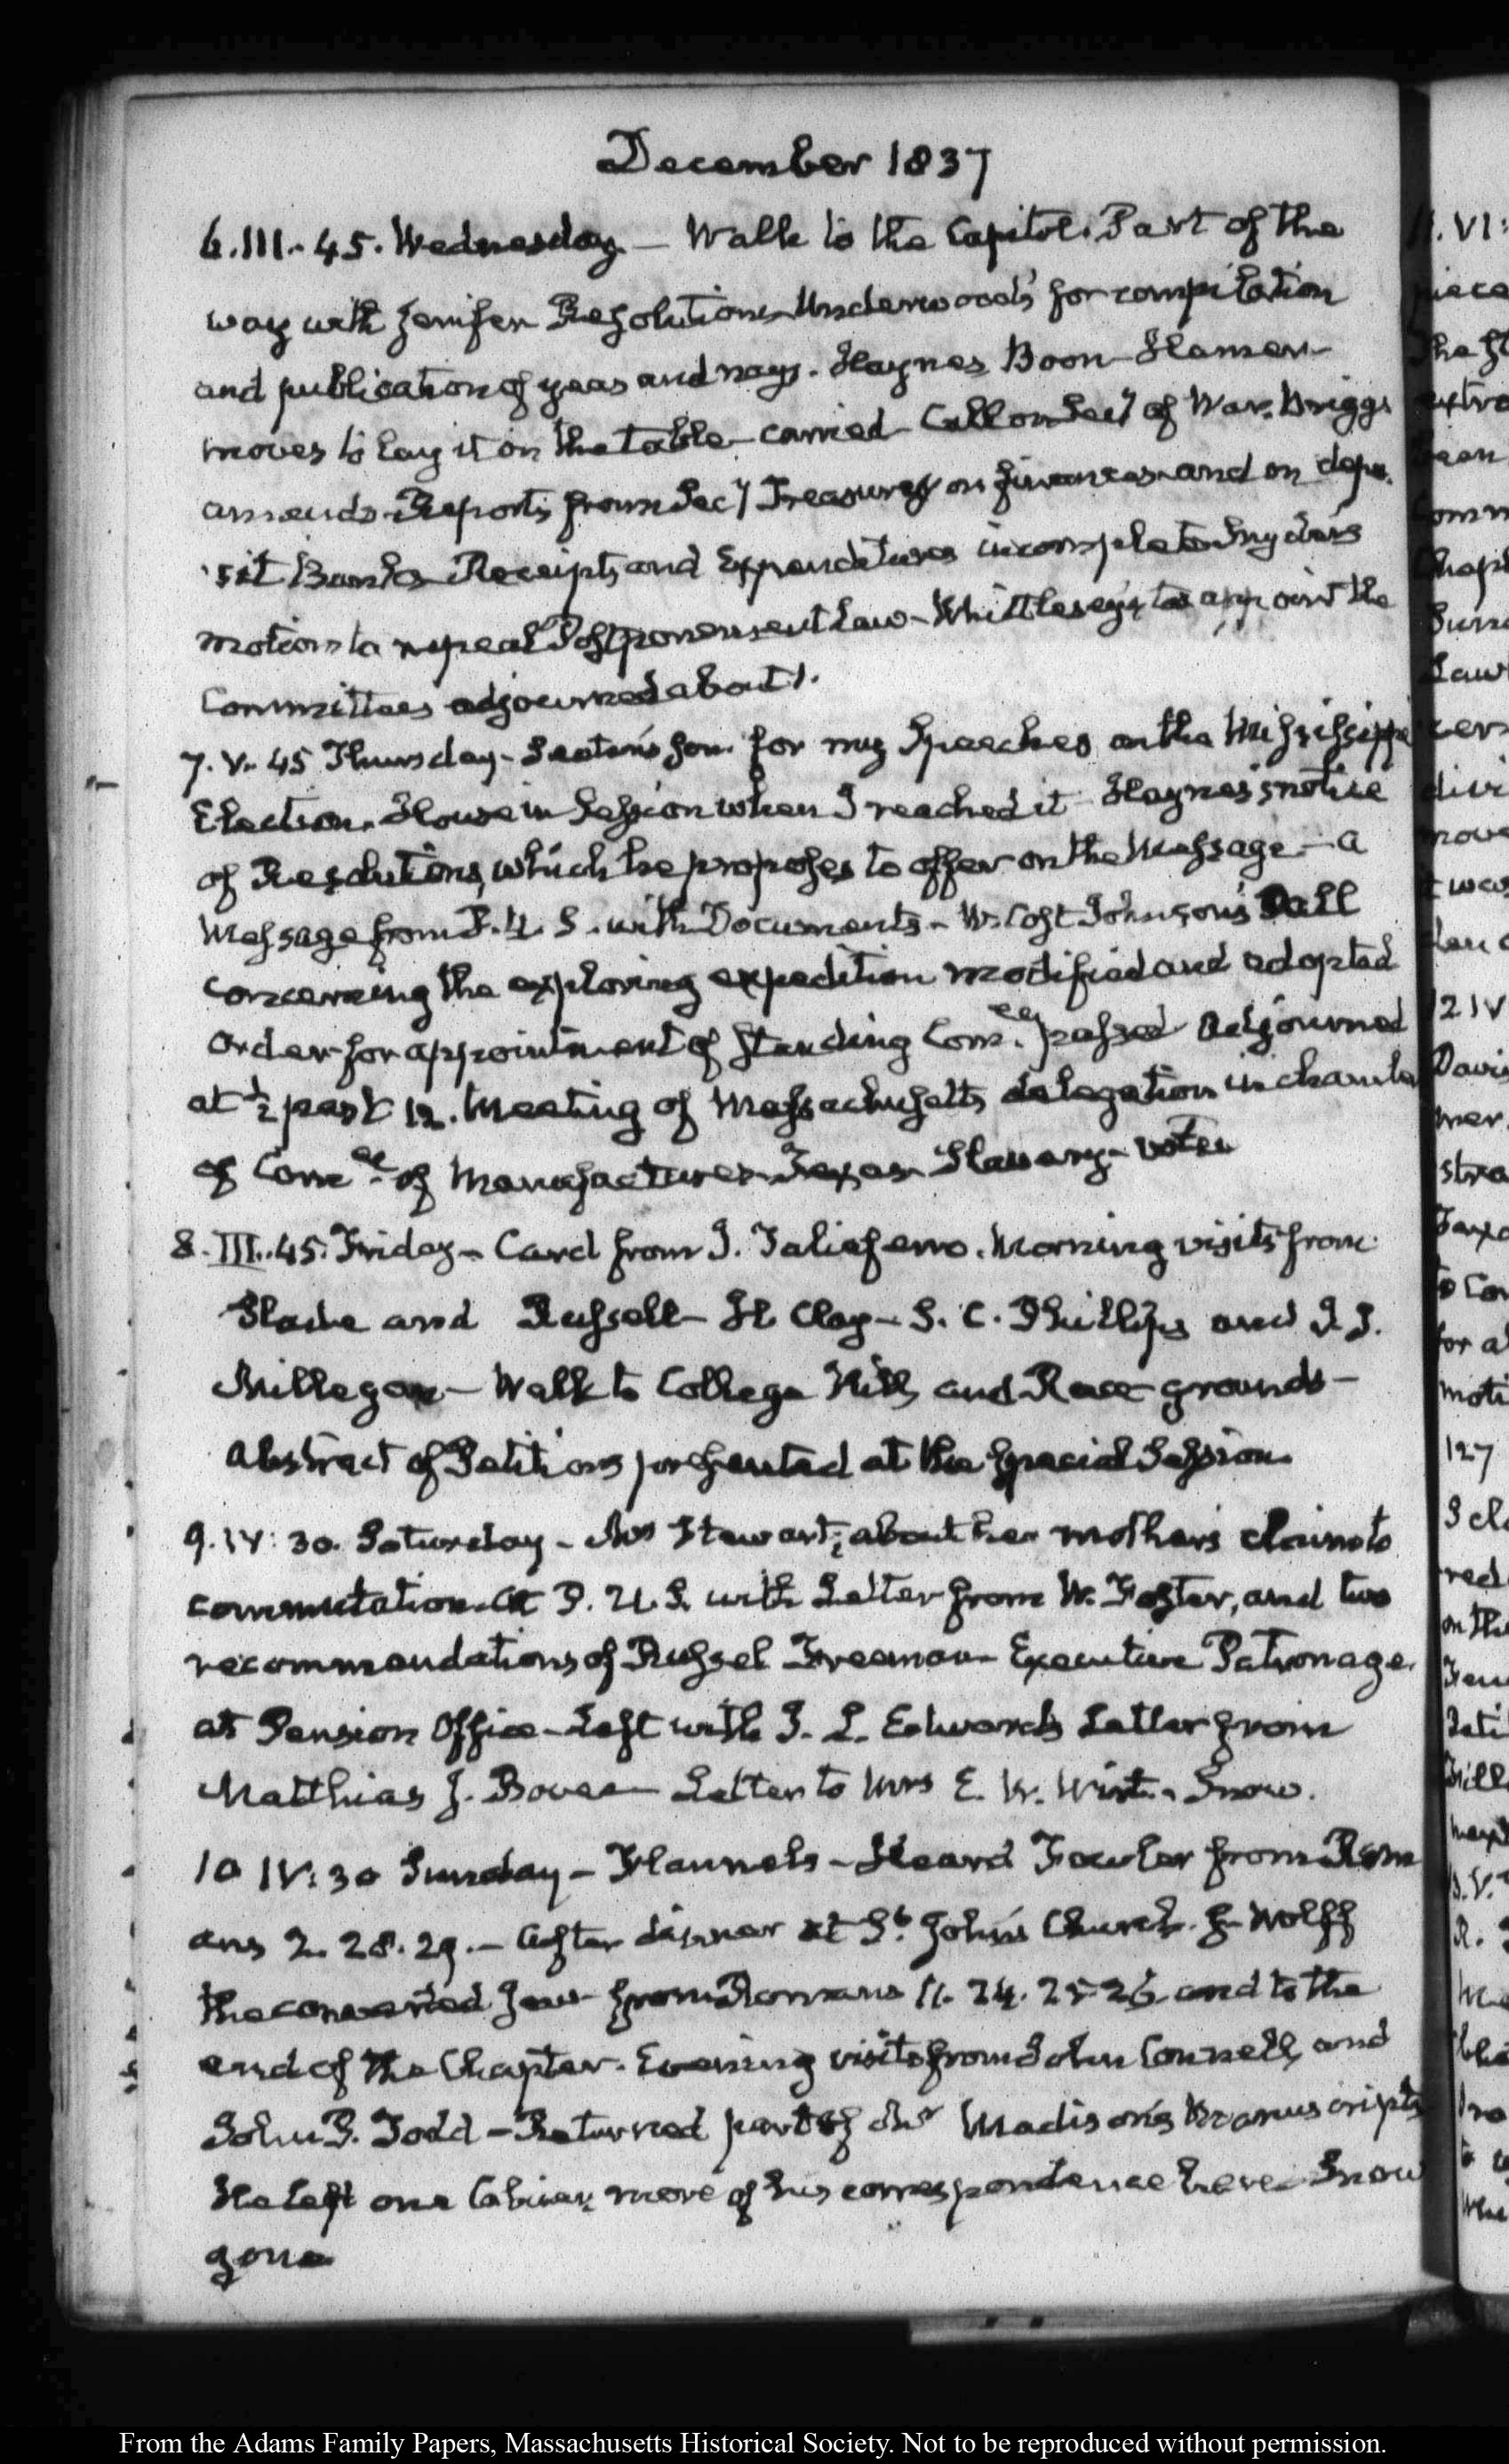 December 1837
6. III. 45. Wednesday — Walk to the Capitol. Part of the
way with Jenifer Resolutions Underwood's for compilation
and publication of yeas and nays. Haynes Boon Hamer
moves to lay it on the table — carried — Call on Secy of War. Briggs
amends. Reports from Secy Treasury on finances and on depo-
sit Banks Receipts and Expenditures incomplete
motion to repeal Postponement Law — Whittlesey's to appoint the
Committees adjourned about 1.
7. V. 45 Thursday — Seaton's son for my Speeches on the Mississippi
Election. House in Session when I reached it Haynes's notice
of Resolutions, which he proposes to offer on the Message — a
Message from P. U. S. with Documents — W. Cost Johnson's Call
concerning the exploring expedition modified and adopted
order for appointment of standing Com.ees passed adjourned
at ½ past 12. Meeting of Massachusetts delegation in chamber
of Comee of Manufactures — Texas Slavery — votes
8. III. 45. Friday — Card from J. Taliaferro. Morning visits from
Slade and Russell — H Clay — S. C. Phillips and J. S.
Millegan — Walk to College Hill and Race grounds —
Abstract of Petitions presented at the special Session.
9. IV: 30. Saturday — Mrs Stewart, about her mother's claim to
commutation. At P. U. S. with Letter from W. Foster, and two
recommendations of Russel Freeman — Executive Patronage.
at Pension Office — Left with J. L. Edwards Letter from
Matthias J. Letter to Mrs E. W. Wirt. Snow.
10 IV: 30 Sunday — Flannels — Heard Fowler from Rom
ans 2. 28. 29. — After dinner at St John's Church. J. Wolff
the converted Jew from Romans 11. 24. 25-26 and to the
end of the Chapter. Evening visits from John Connell, and
John P. Todd — Returned part of Mrs Madison's Manuscripts
He left one more of his correspondence here. Snow
gone
11. VI:
12 IV
127
From the Adams Family Papers, Massachusetts Historical Society. Not to be reproduced without permission.